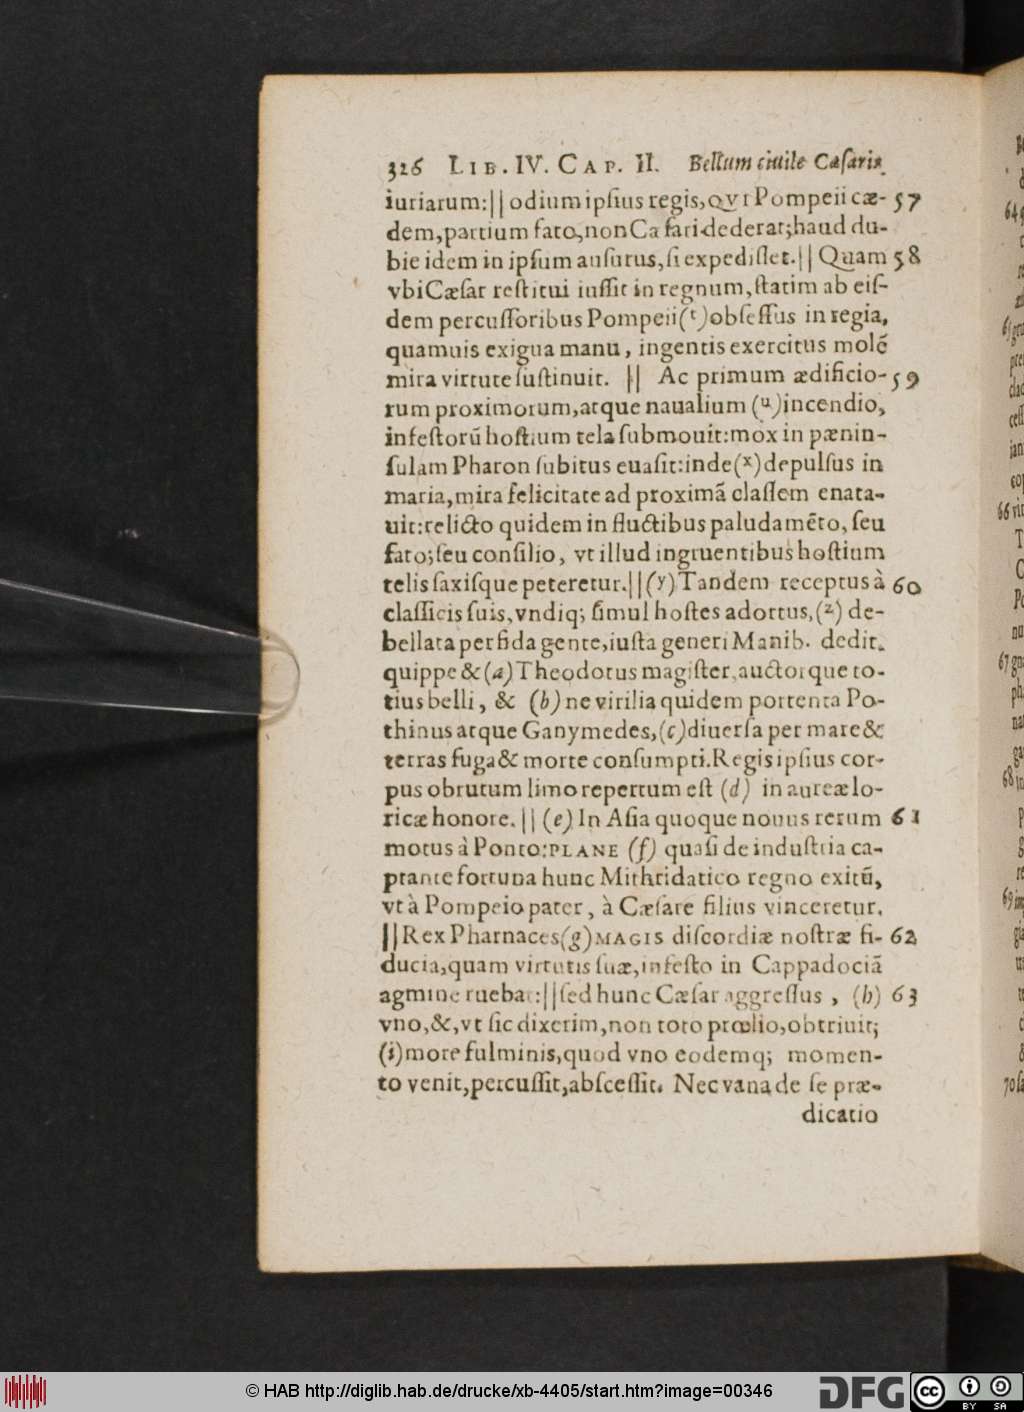 326 LIB. IV. CAP. II. Bellum ciuile Cæsaris.
iuriarum:|| odium ipsius regis, QVI Pompeii cæ- 57
dem, partium fato, non Cæsari dederat; haud du-
bie idem in ipsum ausurus, si expedisset.|| Quam 58
vbi Cæsar restitui iussit in regnum, statim ab eis-
dem percussoribus Pompeii (t) obsessus in regia,
quamuis exigua manu, ingentis exercitus molē
mira virtute sustinuit. || Ac primum ædificio- 59
rum proximorum, atque naualium (u) incendio,
infestorū hostium tela submouit: mox in pænin-
sulam Pharon subitus euasit: inde (x) depulsus in
maria, mira felicitate ad proximā classem enata-
uit: relicto quidem in fluctibus paludamēto, seu
fato; seu consilio, vt illud ingruentibus hostium
telis saxisque peteretur.|| (y) Tandem receptus à 60
classicis suis, vndiq; simul hostes adortus, (z) de-
bellata perfida gente, iusta generi Manib. dedit.
quippe & (a) Theodotus magister, auctorque to-
tius belli, & (b) ne virilia quidem portenta Po-
thinus atque Ganymedes, (c) diuersa per mare &
terras fuga & morte consumpti. Regis ipsius cor-
pus obrutum limo repertum est (d) in aureæ lo-
ricæ honore. || (e) In Asia quoque nouus rerum 61
motus à Ponto: PLANE (f) quasi de industria ca-
ptante fortuna hunc Mithridatico regno exitū,
vt à Pompeio pater, à Cæsare filius vinceretur.
|| Rex Pharnaces (g) MAGIS discordiæ nostræ fi- 62
ducia, quam virtutis suæ, infesto in Cappadociā
agmine ruebat:|| sed hunc Cæsar aggressus, (h) 63
vno, &, vt sic dixerim, non toto prœlio, obtriuit;
(i) more fulminis, quod vno eodemq; momen-
to venit, percussit, abscessit. Nec vana de se præ-
dicatio
64
65
66
67
68
69
70
© HAB http://diglib.hab.de/drucke/xb-4405/start.htm?image=00346
DFG
cc
BY SA